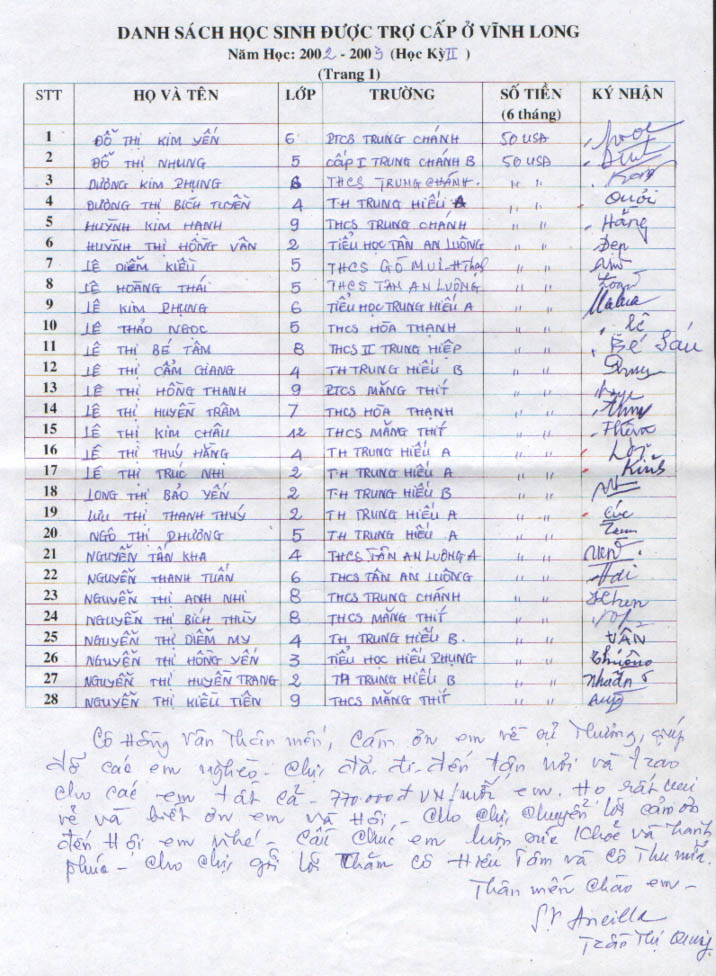 DANH SÁCH HỌC SINH ĐƯỢC TRỢ CẤP Ở VĨNH LONG
Năm Học: 2002 - 2003 (Học Kỳ II )
(Trang 1)
STT HỌ VÀ TÊN LỚP TRƯỜNG SỐ TIỀN KÝ NHẬN
(6 tháng)
1 ĐỖ THỊ KIM YẾN 6 PTCS TRUNG CHÁNH 50 USA
2 ĐỖ THỊ NHUNG 5 CẤP I TRUNG CHÁNH B 50 USA
3 DƯƠNG KIM PHỤNG 6 THCS TRUNG CHÁNH. " "
4 ĐƯƠNG THỊ BÍCH TUYỀN 4 TH TRUNG HIẾU A " " Quới
5 HUỲNH KIM HẠNH 9 THCS TRUNG CHÁNH " " Hằng
6 HUỲNH THỊ HỒNG VÂN 2 TIỂU HỌC TÂN AN LUÔNG " " Đẹp
7 LÊ DIỄM KIỀU 5 THCS " "
8 LÊ HOÀNG THÁI 5 THCS TÂN AN LUÔNG " "
9 LÊ KIM PHỤNG 6 TIỂU HỌC TRUNG HIẾU A " "
10 LÊ THẢO NGỌC 5 THCS HÒA THẠNH " " Lê
11 LÊ THỊ BÉ TÂM 8 THCS II TRUNG HIỆP " " Bé Sáu
12 LÊ THỊ CẨM GIANG 4 TH TRUNG HIẾU B " "
13 LÊ THỊ HỒNG THANH 9 PTCS MĂNG THÍT " "
14 LÊ THỊ HUYỀN TRÂM 7 THCS HÒA THẠNH " "
15 LÊ THỊ KIM CHÂU 12 THCS MĂNG THÍT " "
16 LÊ THỊ THUÝ HẰNG 4 TH TRUNG HIẾU A " "
17 LÊ THỊ TRÚC NHỊ 2 TH TRUNG HIẾU A " "
18 LONG THỊ BẢO YẾN 2 TH TRUNG HIẾU B " "
19 LƯU THỊ THANH THUÝ 2 TH TRUNG HIẾU A " " Cúc
20 NGÔ THỊ PHƯƠNG 5 TH TRUNG HIẾU A " "
21 NGUYỄN TẤN KHA 4 THCS TÂN AN LUÔNG A " "
22 NGUYỄN THANH TUẤN 6 THCS TÂN AN LUÔNG " "
23 NGUYỄN THỊ ANH NHI 8 THCS TRUNG CHÁNH " "
24 NGUYỄN THỊ BÍCH THÙY 8 THCS MĂNG THÍT " "
25 NGUYỄN THỊ DIỄM MY 4 TH TRUNG HIẾU B. " " VÂN
26 NGUYỄN THỊ HỒNG YẾN 3 TIỂU HỌC HIẾU PHỤNG " "
27 NGUYỄN THỊ HUYỀN TRANG 2 TH TRUNG HIẾU B " "
28 NGUYỄN THỊ KIỀU TIÊN 9 THCS MĂNG THÍT " "
Cô Hồng Vân thân mến, cám ơn em về sự thương, giúp
đỡ các em nghèo - Chị đã đi đến tận nơi và trao
cho các em tất cả - 770.000đ VN/mỗi em. Họ rất vui
vẻ và biết ơn em và Hội - Cho chị chuyển lời cảm ơn
đến Hội em nhé - Cầu chúc em luôn sức khỏe và hạnh
phúc - Cho chị gởi lời thăm cô Hiếu Tâm và cô Thu nữa.
Thân mến chào em -
Sr Ancilla
Trần Thị